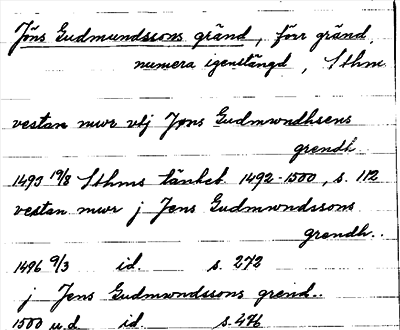 Jöns Gudmundssons gränd, förr gränd,
numera igenstängd, Sthm
vestan mwr vbj Jöns Gudmwndhsens
grendh
1493 19/8 Sthms tänkeb. 1492-1500, s. 112
vestan mwr j Jens Gudmwndssons
grendh..
1496 9/3 id. s. 272
j Jens Gudmwndssons grend..
1500 u.d. id. s. 476